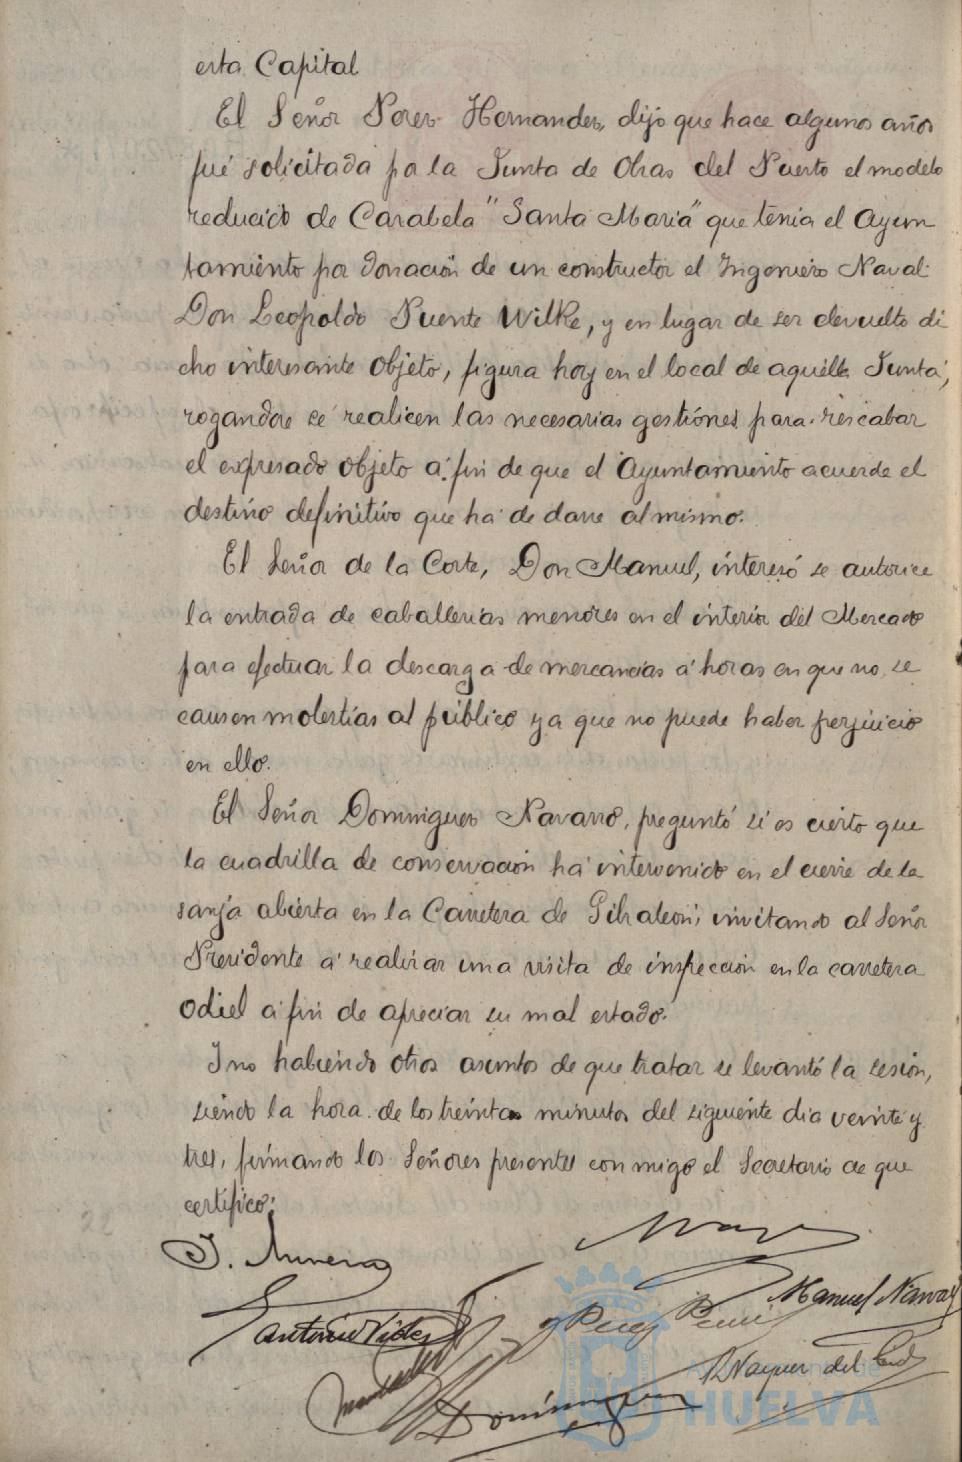 esta Capital
El Señor Perez Hernandez, dijo que hace algunos años
fué solicitada por la Junta de Obras del Puerto el modelo
reducido de Carabela "Santa Maria" que tenia el Ayun
tamiento por donación de un constructor el Ingeniero Naval
Don Leopoldo Puente Wilke, y en lugar de ser devuelto di
cho interesante objeto, figura hoy en el local de aquélla Junta,
rogandose se realicen las necesarias gestiónes para rescabar
el expresado objeto á fin de que el Ayuntamiento acuerde el
destino definitivo que ha de darse al mismo.
El Señor de la Corte, Don Manuel, interesó se autorice
la entrada de caballerias menores en el interior del Mercado
para efectuar la descarga de mercancias á horas en que no se
causen molestías al público ya que no puede haber perjuicio
en ello.
El Señor Dominguez Navarro, preguntó si es cierto que
la cuadrilla de conservación ha intervenido en el cierre de la
sanja abierta en la Carretera de Gibraleon, invitando al Señor
Presidente á realizar una visita de inspección en la carretera
Odiel á fin de apreciar su mal estado.
Y no habiendo otros asuntos de que tratar se levantó la sesión,
siendo la hora de los treinta minutos del siguiente dia veinte y
tres, firmando los Señores presentes conmigo el Secretario de que
certifico.
Antonio Vides
Manuel Navarro
Perez
Dominguez
Vazquez del
Ayuntamiento de
HUELVA